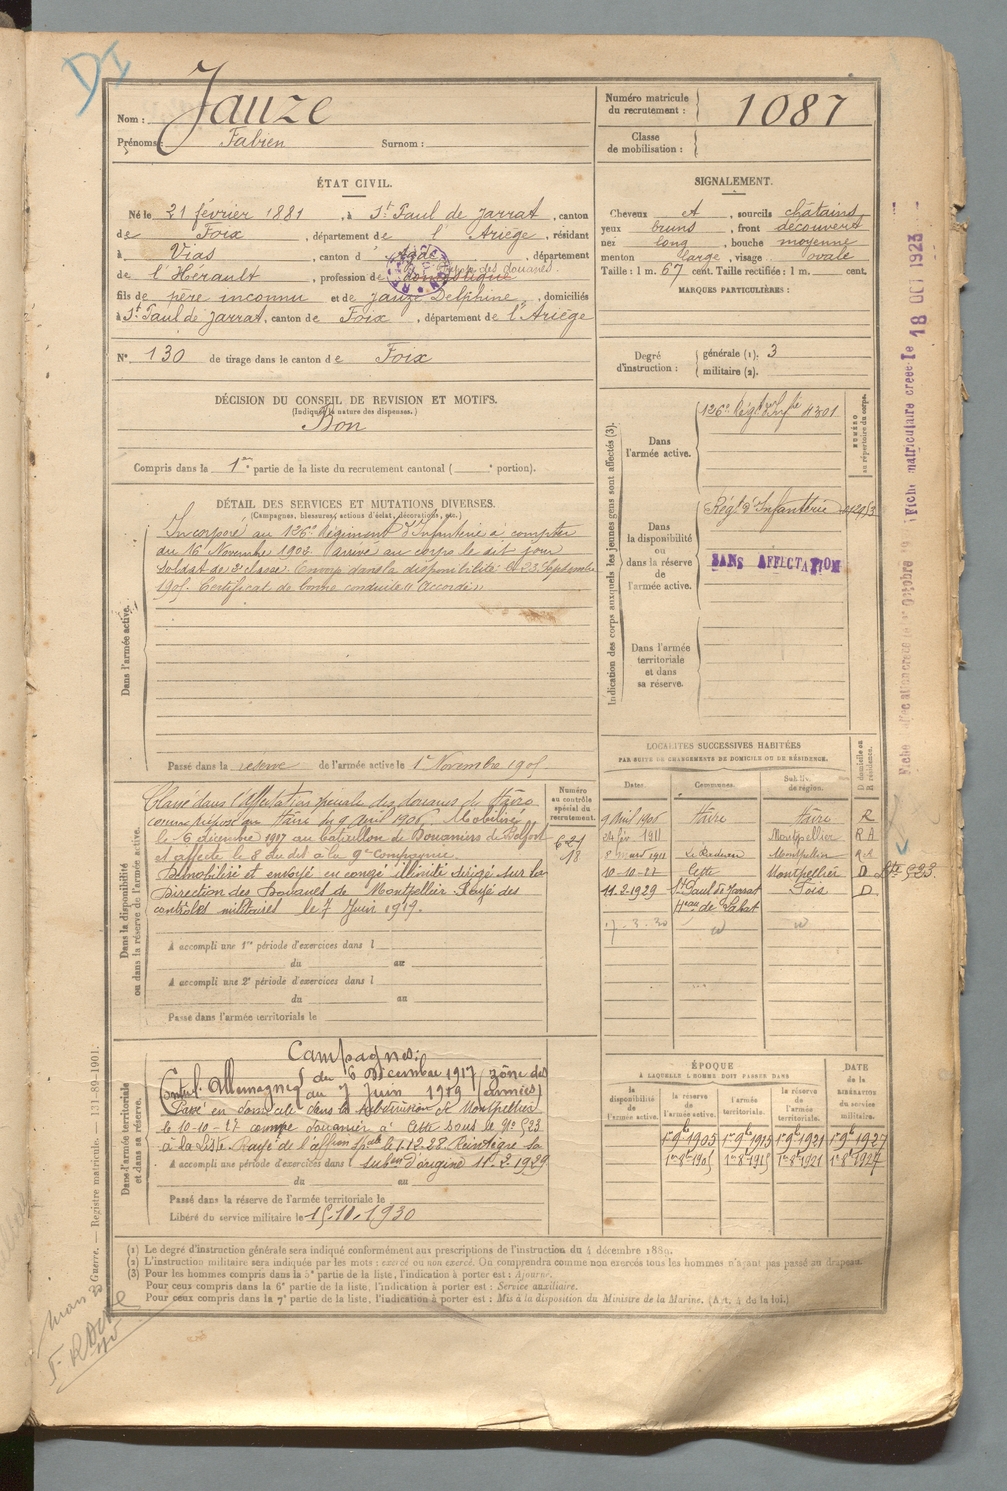 DI
Nom : Jauze
Prénoms : Fabien Surnom :
Numéro matricule du recrutement : 1087
Classe de mobilisation :
ÉTAT CIVIL.
Né le 21 février 1881, à St Paul de Jarrat, canton
de Foix, département de l'Ariège, résidant
à Vias, canton d'Agde, département
de l'Hérault, profession de domestique
des douanes.
fils de père inconnu et de Jauze Delphine, domiciliés
à St Paul de Jarrat, canton de Foix, département de l'Ariège
N° 130 de tirage dans le canton de Foix
SIGNALEMENT.
Cheveux et, sourcils châtains
yeux bruns, front découvert
nez long, bouche moyenne
menton large, visage ovale
Taille : 1 m. 67 cent. Taille rectifiée : 1 m. cent.
MARQUES PARTICULIÈRES :
Degré d'instruction : générale (1). 3
militaire (2).
DÉCISION DU CONSEIL DE REVISION ET MOTIFS.
(Indiquer la nature des dispenses.)
Bon
Compris dans la 1re partie de la liste du recrutement cantonal ( e portion).
DÉTAIL DES SERVICES ET MUTATIONS DIVERSES.
(Campagnes, blessures, actions d'éclat, décorations, etc.)
Dans l'armée active.
Incorporé au 126e Régiment d'Infanterie à compter
du 16 Novembre 1902. Arrivé au corps le dit jour
soldat de 2e classe. Envoyé dans la disponibilité le 23 Septembre
1905. Certificat de bonne conduite "Accordé"
Passé dans la réserve de l'armée active le 1 Novembre 1905
Indication des corps auxquels les jeunes gens sont affectés (3).
Dans l'armée active.
126e Régt 4301
NUMÉRO au répertoire du corps.
Dans la disponibilité ou dans la réserve de l'armée active.
Régt d'Infanterie
SANS AFFECTATION
Dans l'armée territoriale et dans sa réserve.
Fiche matriculaire créée le 18 OCT 1923
Dans la disponibilité ou dans la réserve de l'armée active.
Classé dans l'affectation spéciale des douanes
comme préposé au Havre du 9 Avril 1906. Mobilisé
le 6 décembre 1917 au bataillon de Douaniers de Belfort
et affecté le 8 du dit à la 9e Compagnie.
Démobilisé et envoyé en congé illimité dirigé sur la
Direction des Douanes de Montpellier Rayé des
contrôles militaires le 7 Juin 1919.
Numéro au contrôle spécial du recrutement.
A accompli une 1re période d'exercices dans l
du au
A accompli une 2e période d'exercices dans l
du au
Passé dans l'armée territoriale le
LOCALITÉS SUCCESSIVES HABITÉES
PAR SUITE DE CHANGEMENTS DE DOMICILE OU DE RÉSIDENCE.
Dates. Communes. Subdiv. de région. D domicile ou R résidence.
9 Avril 1906 Havre Havre R
1911 Montpellier R A
1911 Montpellier R A
10-10-27 Cette Montpellier D
11-2-1929 St Paul de Jarrat Foix D
Hau de Labat
17-3-30 id id
Dans l'armée territoriale et dans sa réserve.
Campagnes:
Contre l'Allemagne du 6 Décembre 1917 (zône des
au 7 Juin 1919 armées)
Passé en domicile dans la subdivision de Montpellier
le 10-10-27 compe douanier à Cette sous le N° 523
à la Liste. Rayé de l'affion spale le 1.12.28. Réintègre sa
subon d'origine 11.2.1929
A accompli une période d'exercices dans l
du au
Passé dans la réserve de l'armée territoriale le
Libéré du service militaire le 15.10.1930
ÉPOQUE
À LAQUELLE L'HOMME DOIT PASSER DANS
la disponibilité de l'armée active. la réserve de l'armée active. l'armée territoriale. la réserve de l'armée territoriale. DATE de la LIBÉRATION du service militaire.
1er 9bre 1905 1er 9bre 1915 1er 9bre 1921 1er 9bre 1927
(1) Le degré d'instruction générale sera indiqué conformément aux prescriptions de l'instruction du 4 décembre 1889.
(2) L'instruction militaire sera indiquée par les mots : exercé ou non exercé. On comprendra comme non exercés tous les hommes n'ayant pas passé au drapeau.
(3) Pour les hommes compris dans la 5e partie de la liste, l'indication à porter est : Ajourné.
Pour ceux compris dans la 6e partie de la liste, l'indication à porter est : Service auxiliaire.
Pour ceux compris dans la 7e partie de la liste, l'indication à porter est : Mis à la disposition du Ministre de la Marine. (Art. 4 de la loi.)
Guerre. — Registre matricule. — 131-89-1901.